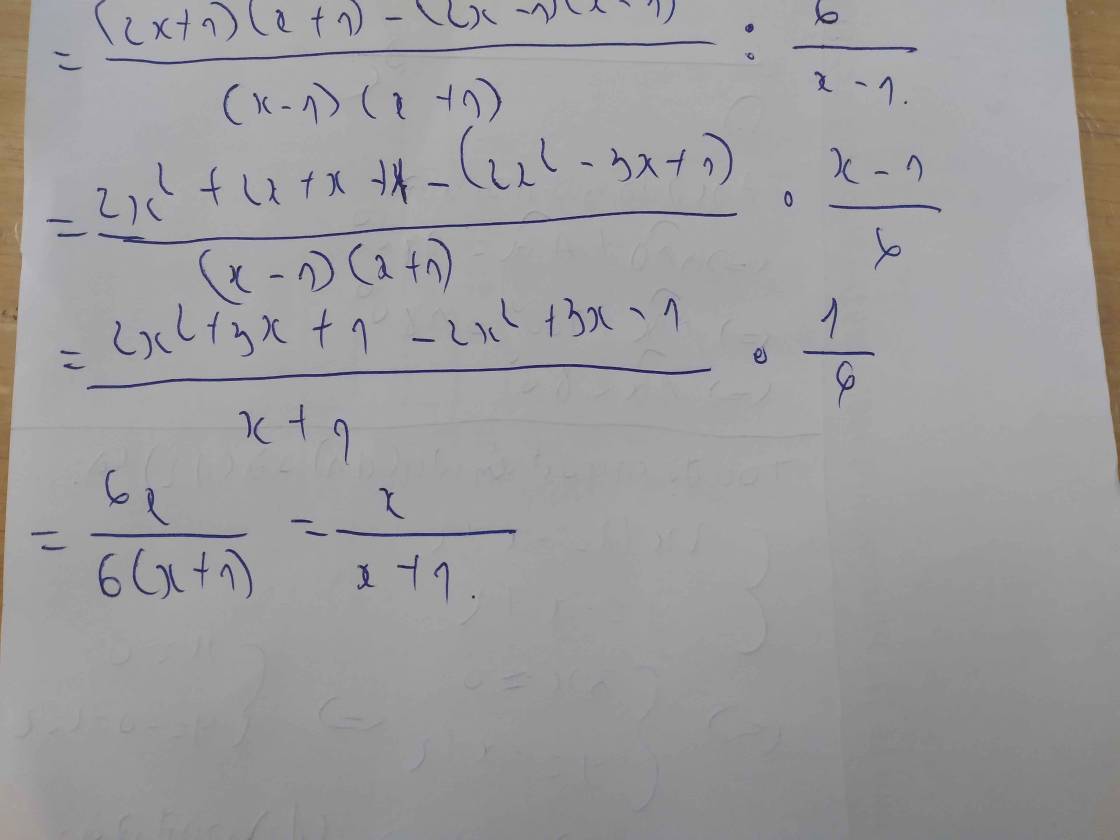 = \frac{(2x+1)(x+1) - (2x-1)(x-1)}{(x-1)(x+1)} : \frac{6}{x-1}.
= \frac{2x^2+2x+x+1-(2x^2-3x+1)}{(x-1)(x+1)} \cdot \frac{x-1}{6}
= \frac{2x^2+3x+1-2x^2+3x-1}{x+1} \cdot \frac{1}{6}
= \frac{6x}{6(x+1)} = \frac{x}{x+1}.